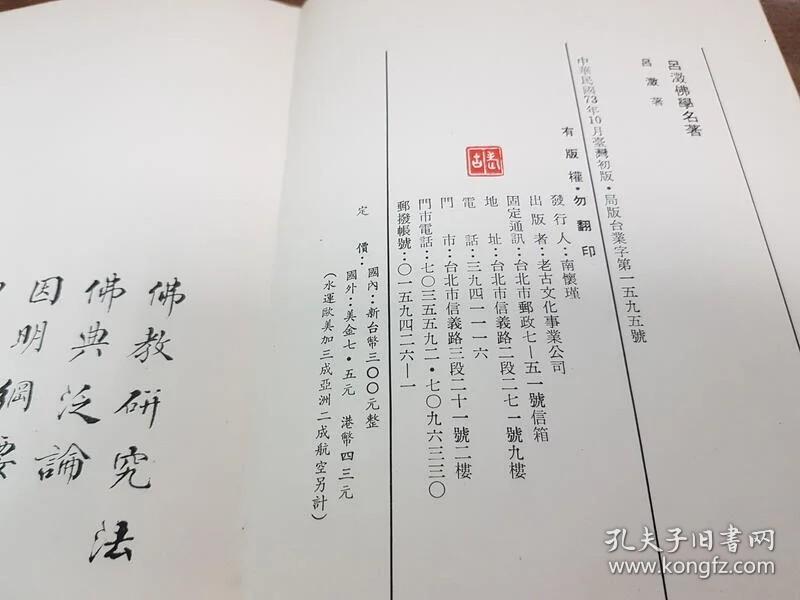 呂澂佛學名著
呂澂 著
中華民國73年10月臺灣初版·局版台業字第一五九五號
有版權·勿翻印
發行人：南懷瑾
出版者：老古文化事業公司
固定通訊：台北市郵政七—五一號信箱
地址：台北市信義路二段二七一號九樓
電話：三九四一一一六
門市：台北市信義路三段二十一號二樓
門市電話：七〇三五五九二·七〇九六三三〇
郵撥帳號：〇一五九四二六—一
定價：
國內：新台幣三〇〇元整
國外：美金七·五元 港幣四三元
（水運歐美加三成亞洲二成航空另計）
老古
佛教研究法
佛典泛論
因明綱要
孔夫子旧书网
kongfz.com